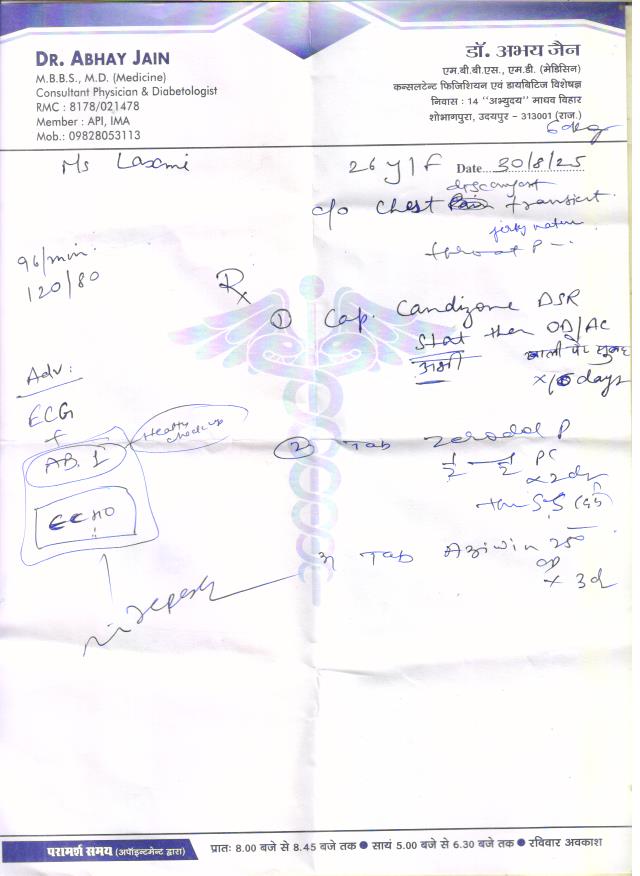 DR. ABHAY JAIN
M.B.B.S., M.D. (Medicine)
Consultant Physician & Diabetologist
RMC : 8178/021478
Member : API, IMA
Mob.: 09828053113
डॉ. अभय जैन
एम.बी.बी.एस., एम.डी. (मेडिसिन)
कन्सलटेन्ट फिजिशियन एवं डायबिटिज विशेषज्ञ
निवास : 14 "अभ्युदय" माधव विहार
शोभागपुरा, उदयपुर - 313001 (राज.)
Ms Laxmi
26 y/F Date 30/8/25
discomfort
c/o Chest transient
96/min.
120/80
Rx
① Cap. Candizone DSR
Stat then OD/AC
अभी खाली पेट सुबह
days
Adv:
ECG
+
Healty checkup
AB. 1
ECHO
② Tab Zerodol P
½ — ½ PC
x 2d
Tab Aziwin 250
OD
x 3d
परामर्श समय (अपॉइन्टमेन्ट द्वारा) प्रातः 8.00 बजे से 8.45 बजे तक ● सायं 5.00 बजे से 6.30 बजे तक ● रविवार अवकाश